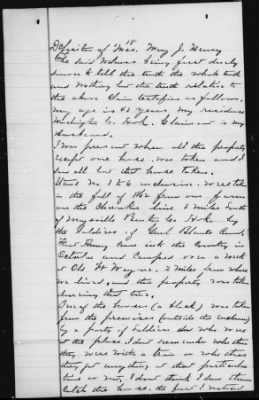 Deposition of Mrs. Mary J. Henry
The said Witness being first duly
sworn to tell the truth the whole truth
and nothing but the truth relative to
the above claim testifies as follows.
My age is 43 years. My residence
Washington Co. Ark. Claimant is my
husband.
I was present when all the property
except one horse was taken and I
saw all but that horse taken.
Items No. 1 to 6 inclusive were taken
in the fall of 1862 from our farm
on the Cherokee line 2 miles South
of Maysville Benton Co. Ark. by
the soldiers of Genl Blunts Comd.
That Army came into the Country in
October and Camped over a week
at Old Ft Wayne. 2 miles from where
we lived, and this property was taken
during that time.
One of the horses (a black) was taken
from the premises (outside the enclosure)
by a party of soldiers who were
at the place. I don't remember whether
they were with a train or whether
they got anything at that particular
time or not, I don't think I saw them
catch the horse. the first I noticed